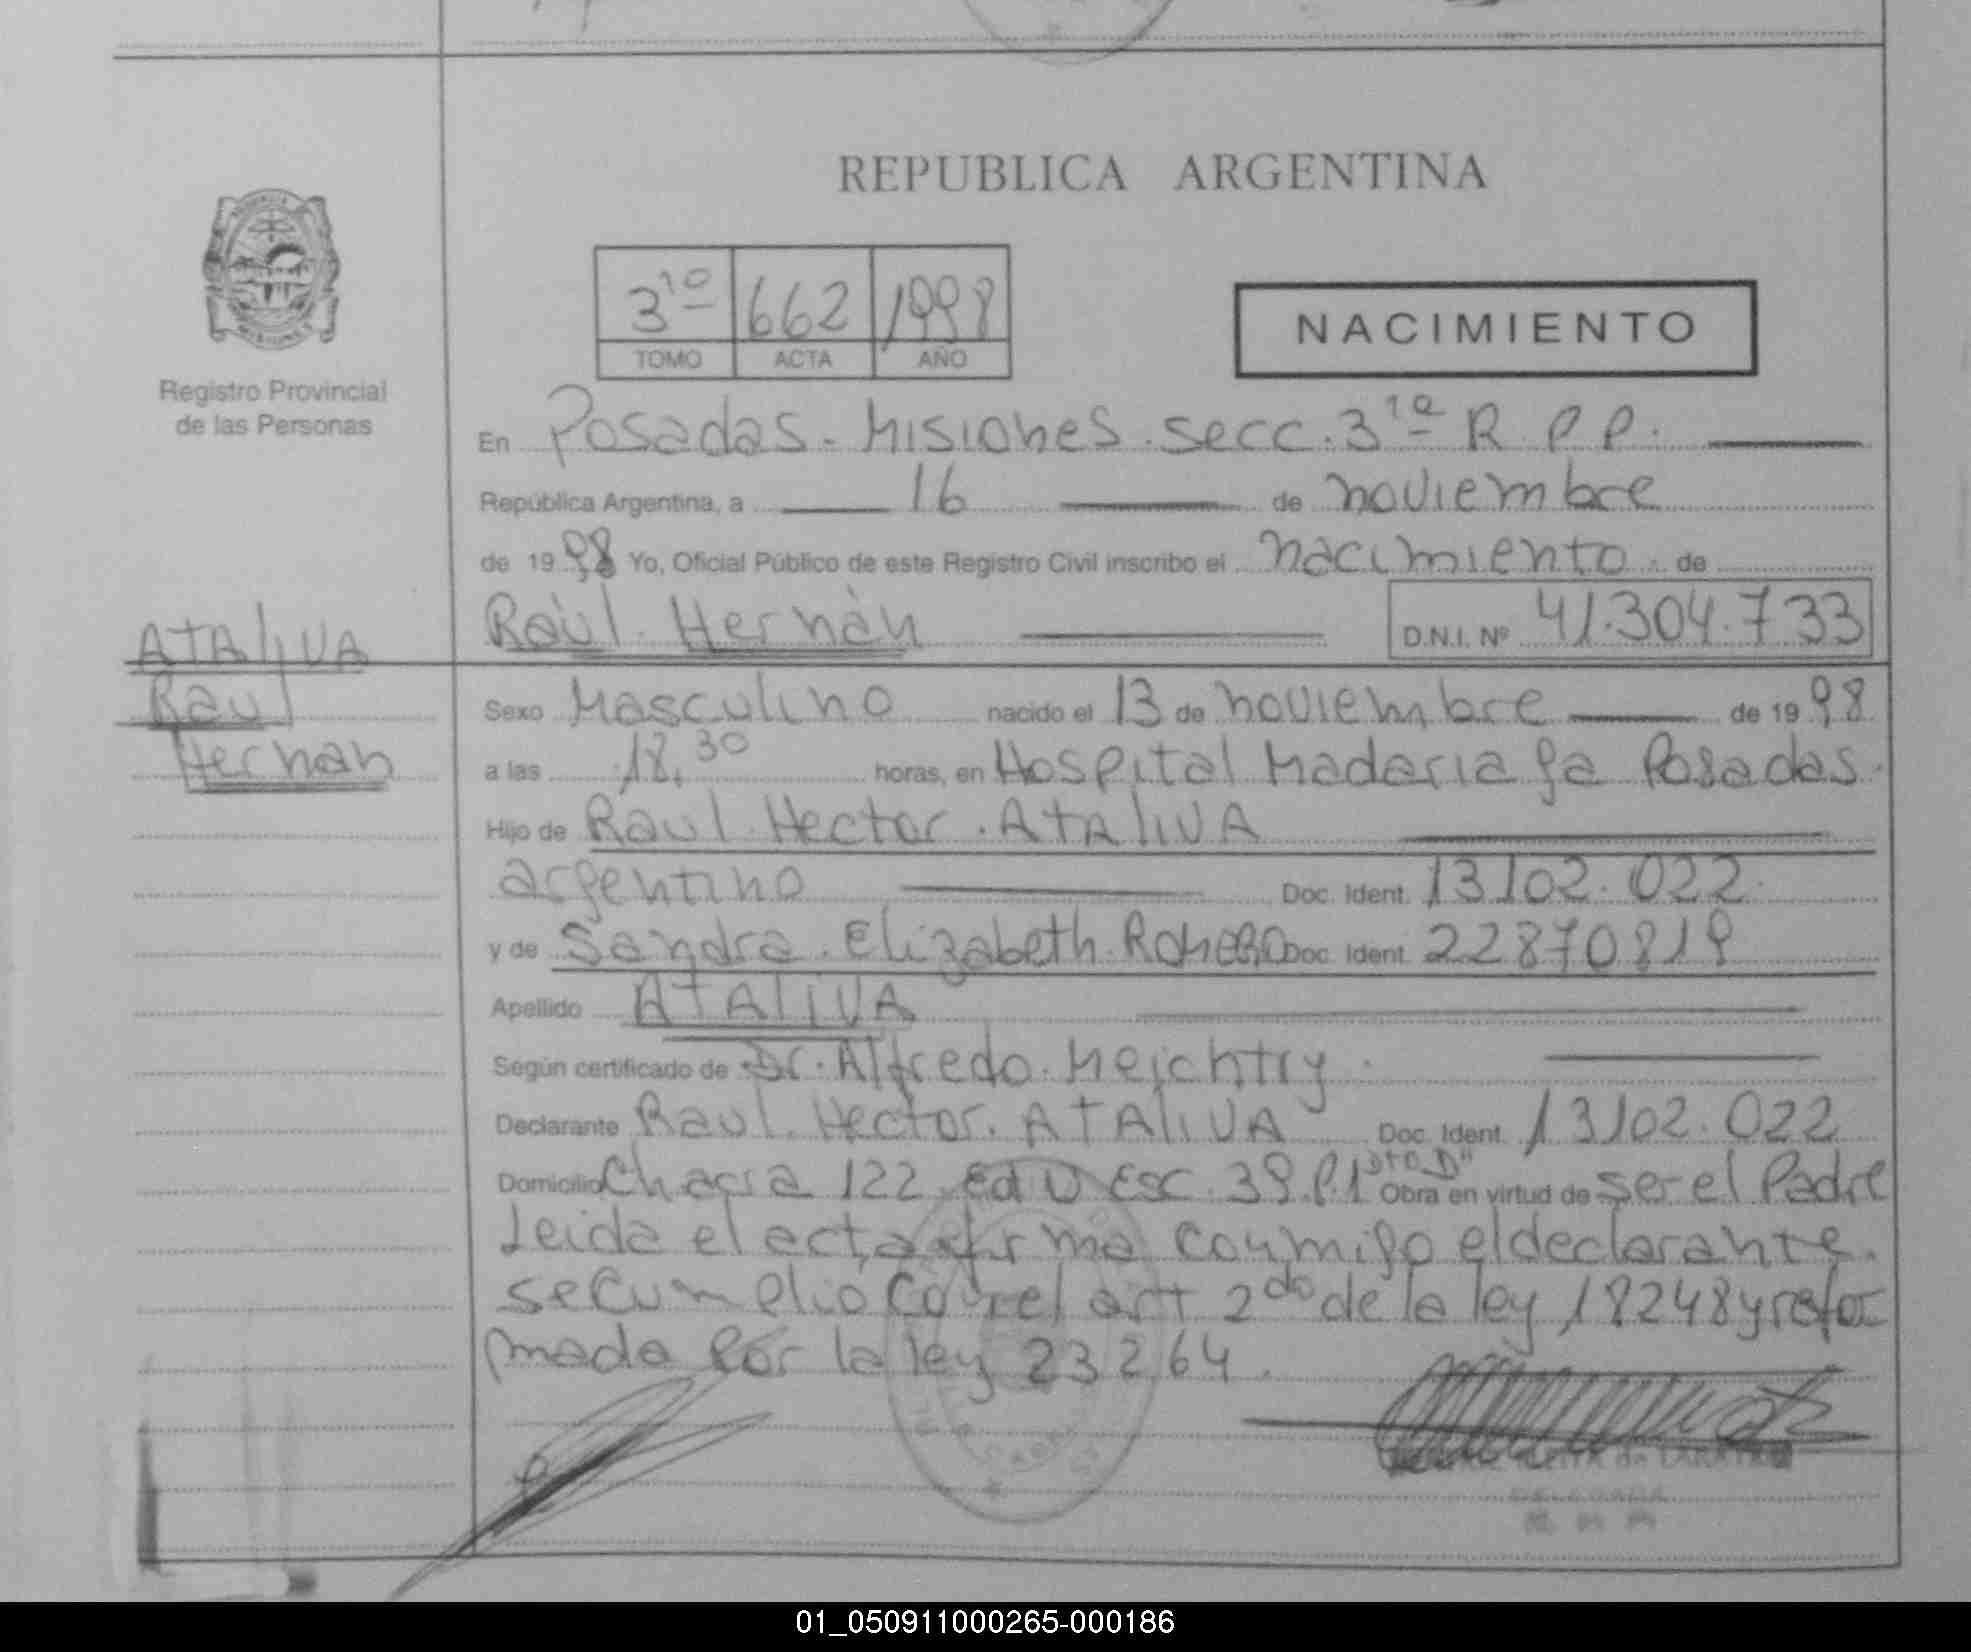 REPUBLICA ARGENTINA
3ro 662 1998
TOMO ACTA AÑO
NACIMIENTO
Registro Provincial
de las Personas
En Posadas - Misiones. secc. 3ra R. P P.
República Argentina, a 16 de noviembre
de 1998 Yo, Oficial Público de este Registro Civil inscribo el nacimiento de
Raúl Hernán D.N.I. Nº 41.304.733
ATAlIVA
Raul
Hernan
Sexo Masculino nacido el 13 de noviembre de 1998
a las 18,30 horas, en Hospital Madariaga Posadas.
Hijo de Raul Hector ATAlIVA
argentino Doc. Ident. 13102.022
y de Sandra Elizabeth Romero Doc. Ident. 22870819
Apellido ATAlIVA
Según certificado de Dr. Alfredo Meichtry
Declarante Raul Hector ATAlIVA Doc. Ident. 13102.022
Domicilio Chacra 122 Ed U Esc. 39 P.1 Dto D" Obra en virtud de ser el Padre
Leida el acta firma conmigo el declarante.
se cumplió con el art 2do de la ley 18248 y refor
mada por la ley 23264.
DELEGADA
01_050911000265-000186